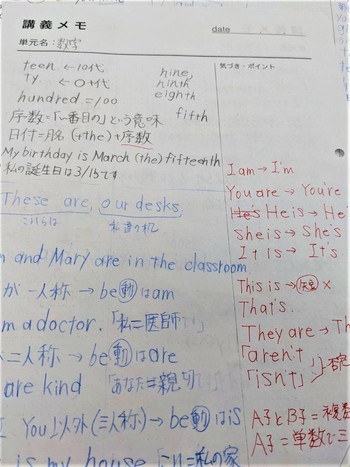 講義メモ
date
単元名：数字
気づき・ポイント
teen ←10代
ty ←○+代
hundred =100
nine,
ninth
eighth
fifth
序数=「~番目の」という意味
日付=月名(+the)+序数
My birthday is March (the) fifteenth
私の誕生日は3/15です
These are our desks
こちらは
私達の机
and Mary are in the classroom
が一人称→be動はam
m a doctor. 「私=医師
二人称→be動はare
are kind 「あなた=親切
You以外(三人称)→be動はis
is my house
=私の家
I am→I'm
You are→You're
He is→He
She is→She's
It is→It's
This is→ ×
That's.
They are→Th
「aren't
「isn't」
A子とB子=複数
A子=単数で三